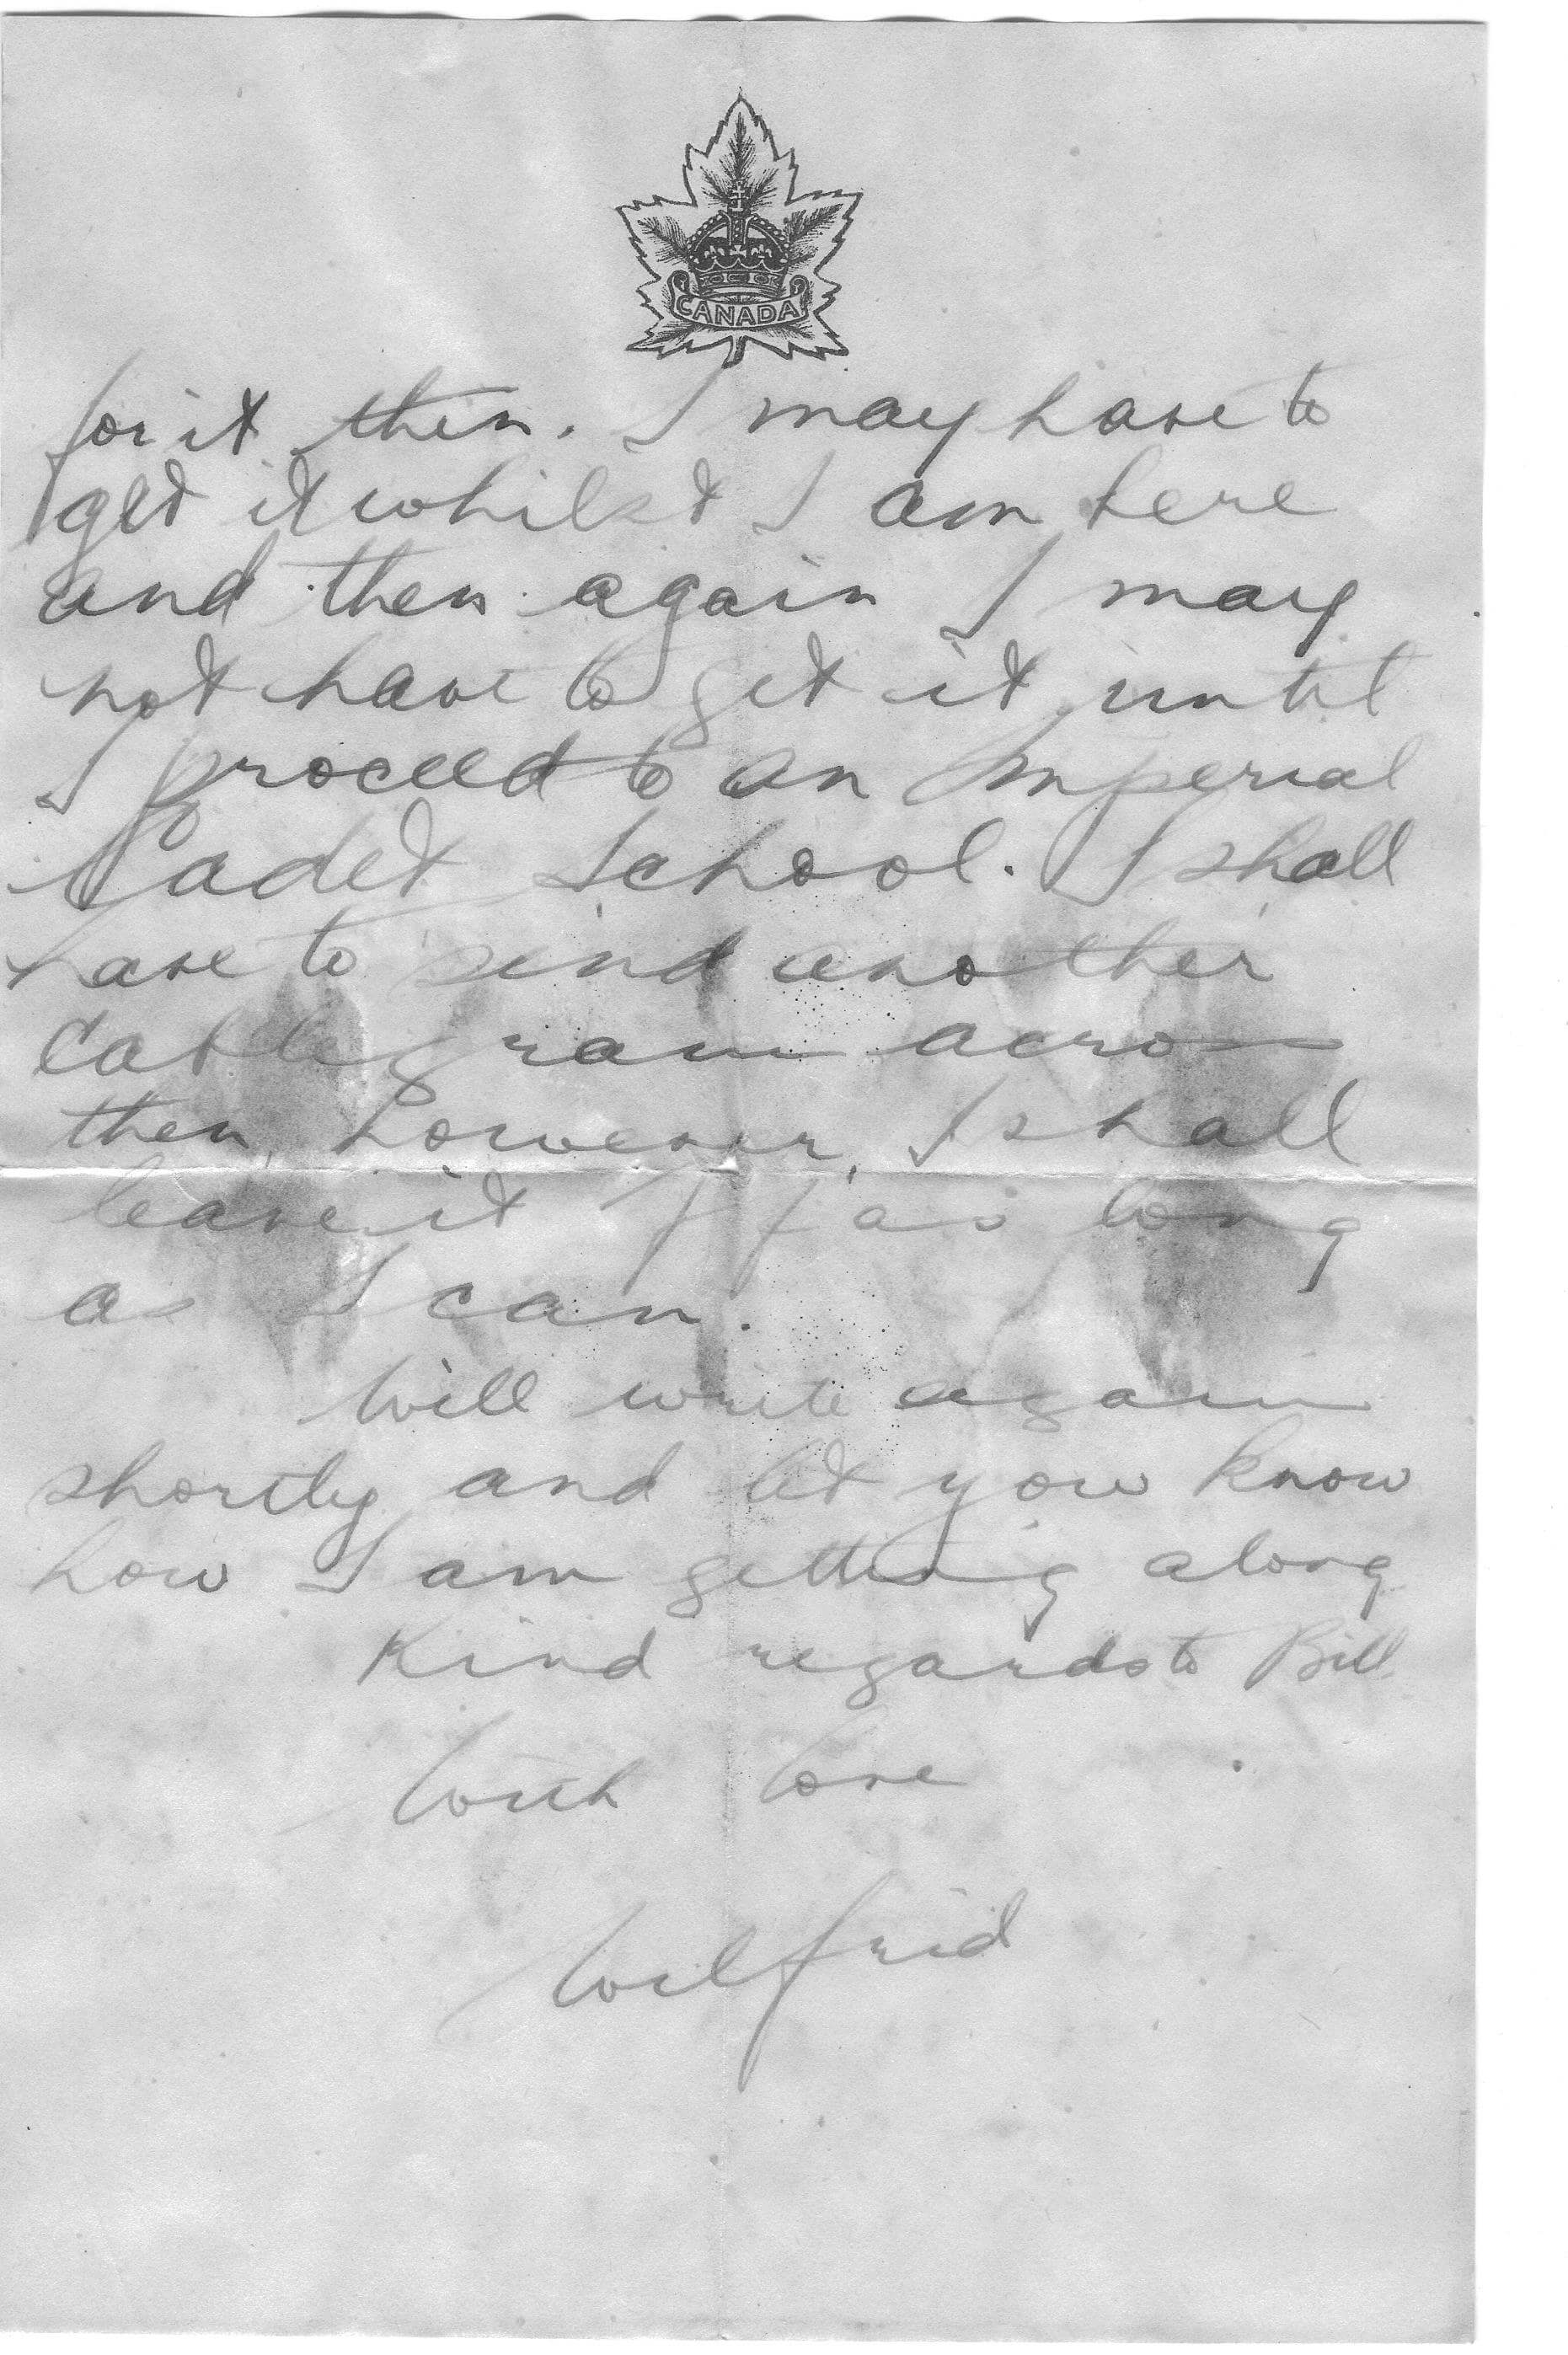 CANADA
for it then. I may have to
get it whilst I am here
and then again I may
not have to get it until
I proceed to an Imperial
Cadet School. I shall
have to send another
Cablegram across
then, however, I shall
leave it off as long
as I can.
Will write again
shortly and let you know
how I am getting along
Kind regards to Bill
With love
Wilfrid